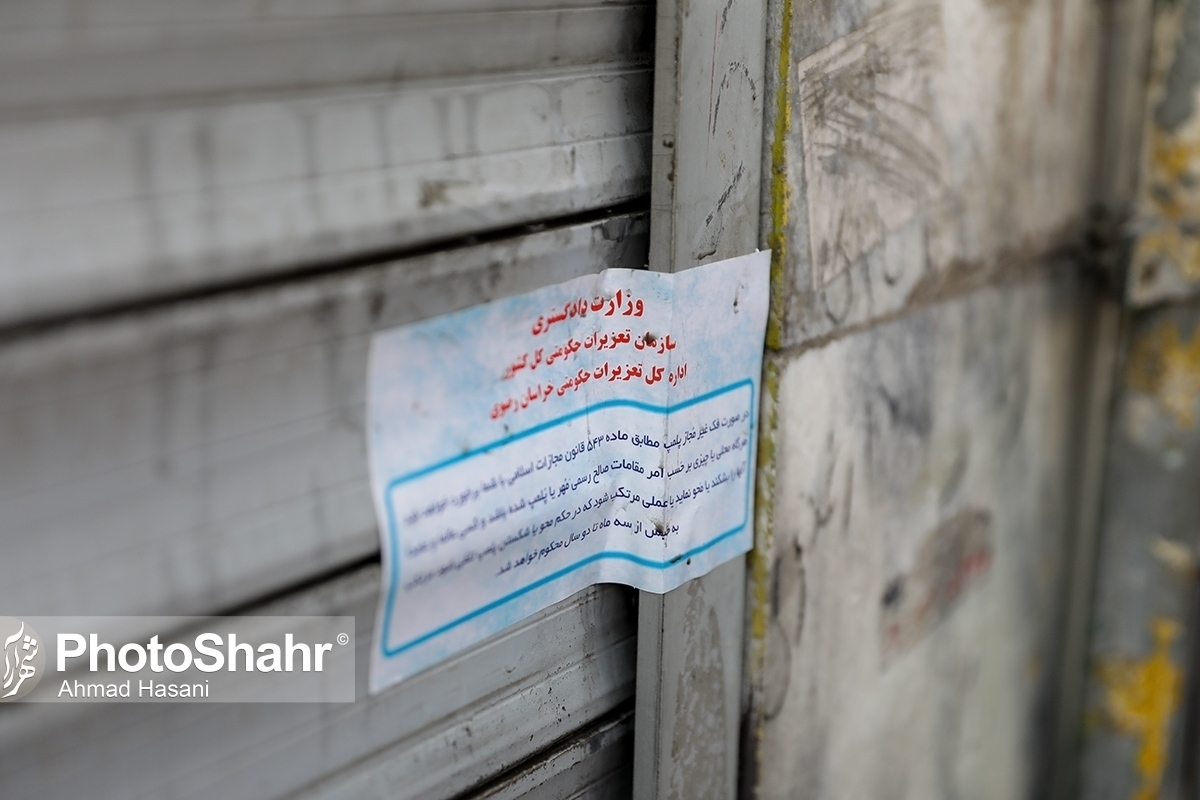 وزارت دادگستری
سازمان تعزیرات حکومتی کل کشور
اداره کل تعزیرات حکومتی خراسان رضوی
در صورت فک غیر مجاز پلمپ مطابق ماده ۵۴۳ قانون مجازات اسلامی
هرگاه محلی یا چیزی بر حسب امر مقامات صالح رسمی مُهر یا پلمپ شده باشد و کسی
آنها را بشکند یا محو نماید یا عملی مرتکب شود که در حکم محو یا شکستن پلمپ تلقی شود
به حبس از سه ماه تا دو سال محکوم خواهد شد.
شهرآرا
PhotoShahr©
Ahmad Hasani